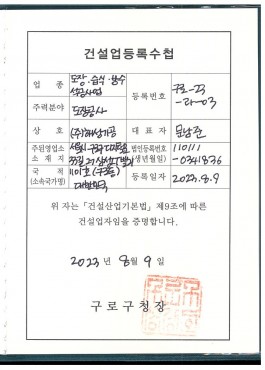 건설업등록수첩
업 종 도장·습식·방수 석공사업
등록번호 구로-23 -21-03
주력분야 도장공사
상 호 (주)해상기공
대 표 자 문남준
주된영업소 소 재 지 서울시 구로구
법인등록번호 (생년월일) 110111 -0341836
국 적 (소속국가명) 대한민국
등록일자 2023.8.9
위 자는 「건설산업기본법」 제9조에 따른
건설업자임을 증명합니다.
2023 년 8 월 9 일
구로구청장